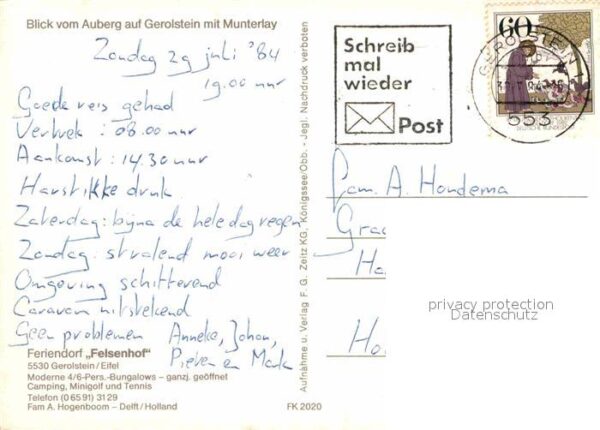 Blick vom Auberg auf Gerolstein mit Munterlay
Zondag 29 juli '84
19.00 uur
Goede reis gehad
Vertrek : 08.00 uur
Aankomst : 14.30 uur
Hartstikke druk
Zaterdag : bijna de hele dag regen
Zondag : stralend mooi weer
Omgeving schitterend
Caravan uitstekend
Geen problemen Anneke, Johan,
Pieter en Mark
Feriendorf „Felsenhof"
5530 Gerolstein / Eifel
Moderne 4/6-Pers.-Bungalows – ganzj. geöffnet
Camping, Minigolf und Tennis
Telefon (0 65 91) 31 29
Fam A. Hogenboom – Delft / Holland
FK 2020
Aufnahme u. Verlag F. G. Zeitz KG, Königssee/Obb. - Jegl. Nachdruck verboten
Schreib
mal
wieder
Post
60
GEROLSTEIN 1
653
DEUTSCHE BUNDESPOST
Fam. A. Hondema
Grac
Ha
Ho
privacy protection
Datenschutz